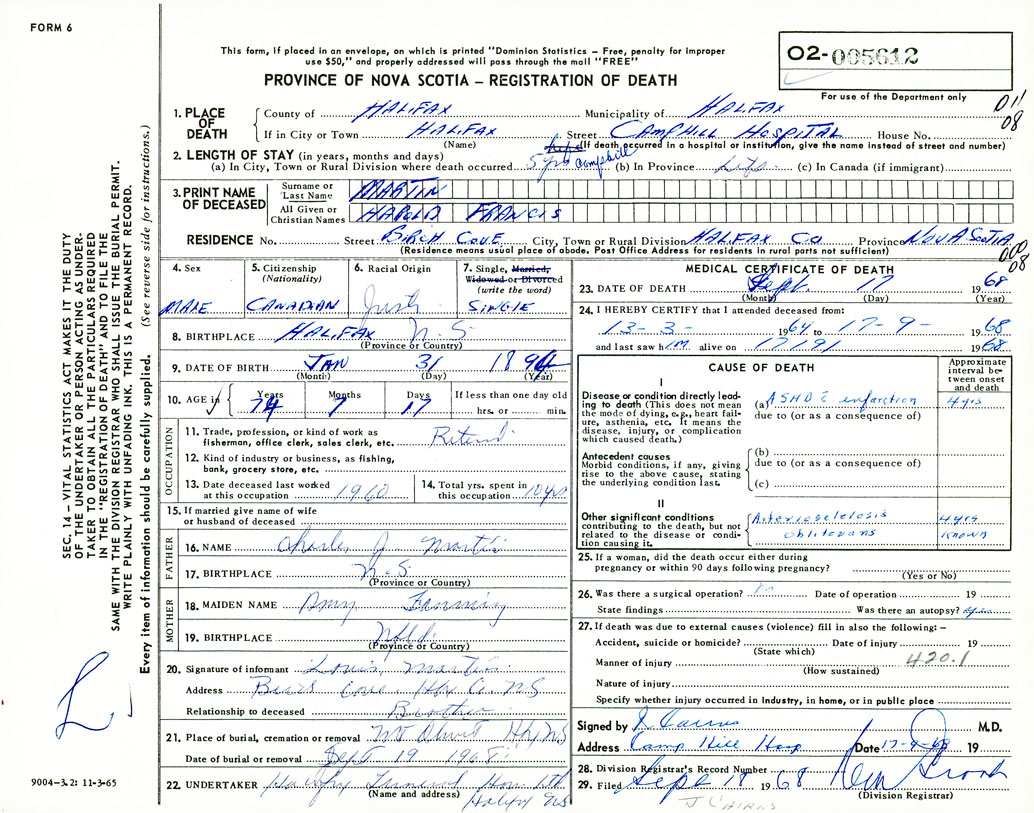 FORM 6
This form, if placed in an envelope, on which is printed "Dominion Statistics – Free, penalty for improper
use $50," and properly addressed will pass through the mail "FREE"
PROVINCE OF NOVA SCOTIA – REGISTRATION OF DEATH
O2-005612
For use of the Department only
011
08
1. PLACE OF DEATH
County of HALIFAX Municipality of HALIFAX
If in City or Town HALIFAX Street CAMPHILL HOSPITAL House No.
(Name) (If death occurred in a hospital or institution, give the name instead of street and number)
2. LENGTH OF STAY (in years, months and days)
(a) In City, Town or Rural Division where death occurred 5 yrs Camphill (b) In Province Life (c) In Canada (if immigrant)
3. PRINT NAME OF DECEASED
Surname or Last Name MARTIN
All Given or Christian Names HAROLD FRANCIS
RESIDENCE No. Street BIRCH COVE City, Town or Rural Division HALIFAX CO Province NOVA SCOTIA
(Residence means usual place of abode. Post Office Address for residents in rural parts not sufficient)
000
08
4. Sex
MALE
5. Citizenship
(Nationality)
CANADIAN
6. Racial Origin
7. Single, Married,
Widowed or Divorced
(write the word)
SINGLE
8. BIRTHPLACE HALIFAX N.S
(Province or Country)
9. DATE OF BIRTH JAN 31 1894
(Month) (Day) (Year)
10. AGE in
Years Months Days
74 7 17
If less than one day old
hrs. or min.
OCCUPATION
11. Trade, profession, or kind of work as
fisherman, office clerk, sales clerk, etc. Retired
12. Kind of industry or business, as fishing,
bank, grocery store, etc.
13. Date deceased last worked
at this occupation 1960
14. Total yrs. spent in
this occupation 10 yrs
15. If married give name of wife
or husband of deceased
FATHER
16. NAME Charles J Martin
17. BIRTHPLACE N.S
(Province or Country)
MOTHER
18. MAIDEN NAME Amy
19. BIRTHPLACE Nfld.
(Province or Country)
20. Signature of informant Louis Martin
Address Cove Hfx Co. NS
Relationship to deceased Brother
21. Place of burial, cremation or removal Mt Olivet Hfx NS
Date of burial or removal Sept 19 1968
22. UNDERTAKER
(Name and address)
Halifax NS
MEDICAL CERTIFICATE OF DEATH
23. DATE OF DEATH Sept. 17 1968
(Month) (Day) (Year)
24. I HEREBY CERTIFY that I attended deceased from:
13- 3- 1964 to 17-9- 1968
and last saw him alive on 17/9/ 1968
CAUSE OF DEATH
Approximate interval between onset and death
I
Disease or condition directly leading to death (This does not mean the mode of dying, e.g., heart failure, asthenia, etc. It means the disease, injury, or complication which caused death.)
(a) ASHD c infarction 4 yrs
due to (or as a consequence of)
Antecedent causes
Morbid conditions, if any, giving rise to the above cause, stating the underlying condition last.
(b)
due to (or as a consequence of)
(c)
II
Other significant conditions
contributing to the death, but not related to the disease or condition causing it.
Arteriosclerosis 4 yrs
obliterans known
25. If a woman, did the death occur either during
pregnancy or within 90 days following pregnancy?
(Yes or No)
26. Was there a surgical operation? no Date of operation 19
State findings Was there an autopsy?
27. If death was due to external causes (violence) fill in also the following: –
Accident, suicide or homicide? Date of injury 19
(State which)
Manner of injury 420.1
(How sustained)
Nature of injury
Specify whether injury occurred in Industry, in home, or in public place
Signed by J Cairns M.D.
Address Camp Hill Hosp Date 17-9-68 19
28. Division Registrar's Record Number
29. Filed Sept 18 1968
(Division Registrar)
J CAIRNS
SEC. 14 – VITAL STATISTICS ACT MAKES IT THE DUTY
OF THE UNDERTAKER OR PERSON ACTING AS UNDER-
TAKER TO OBTAIN ALL THE PARTICULARS REQUIRED
IN THE "REGISTRATION OF DEATH" AND TO FILE THE
SAME WITH THE DIVISION REGISTRAR WHO SHALL ISSUE THE BURIAL PERMIT.
WRITE PLAINLY WITH UNFADING INK. THIS IS A PERMANENT RECORD.
Every item of information should be carefully supplied. (See reverse side for instructions.)
9004–3.2: 11-3-65